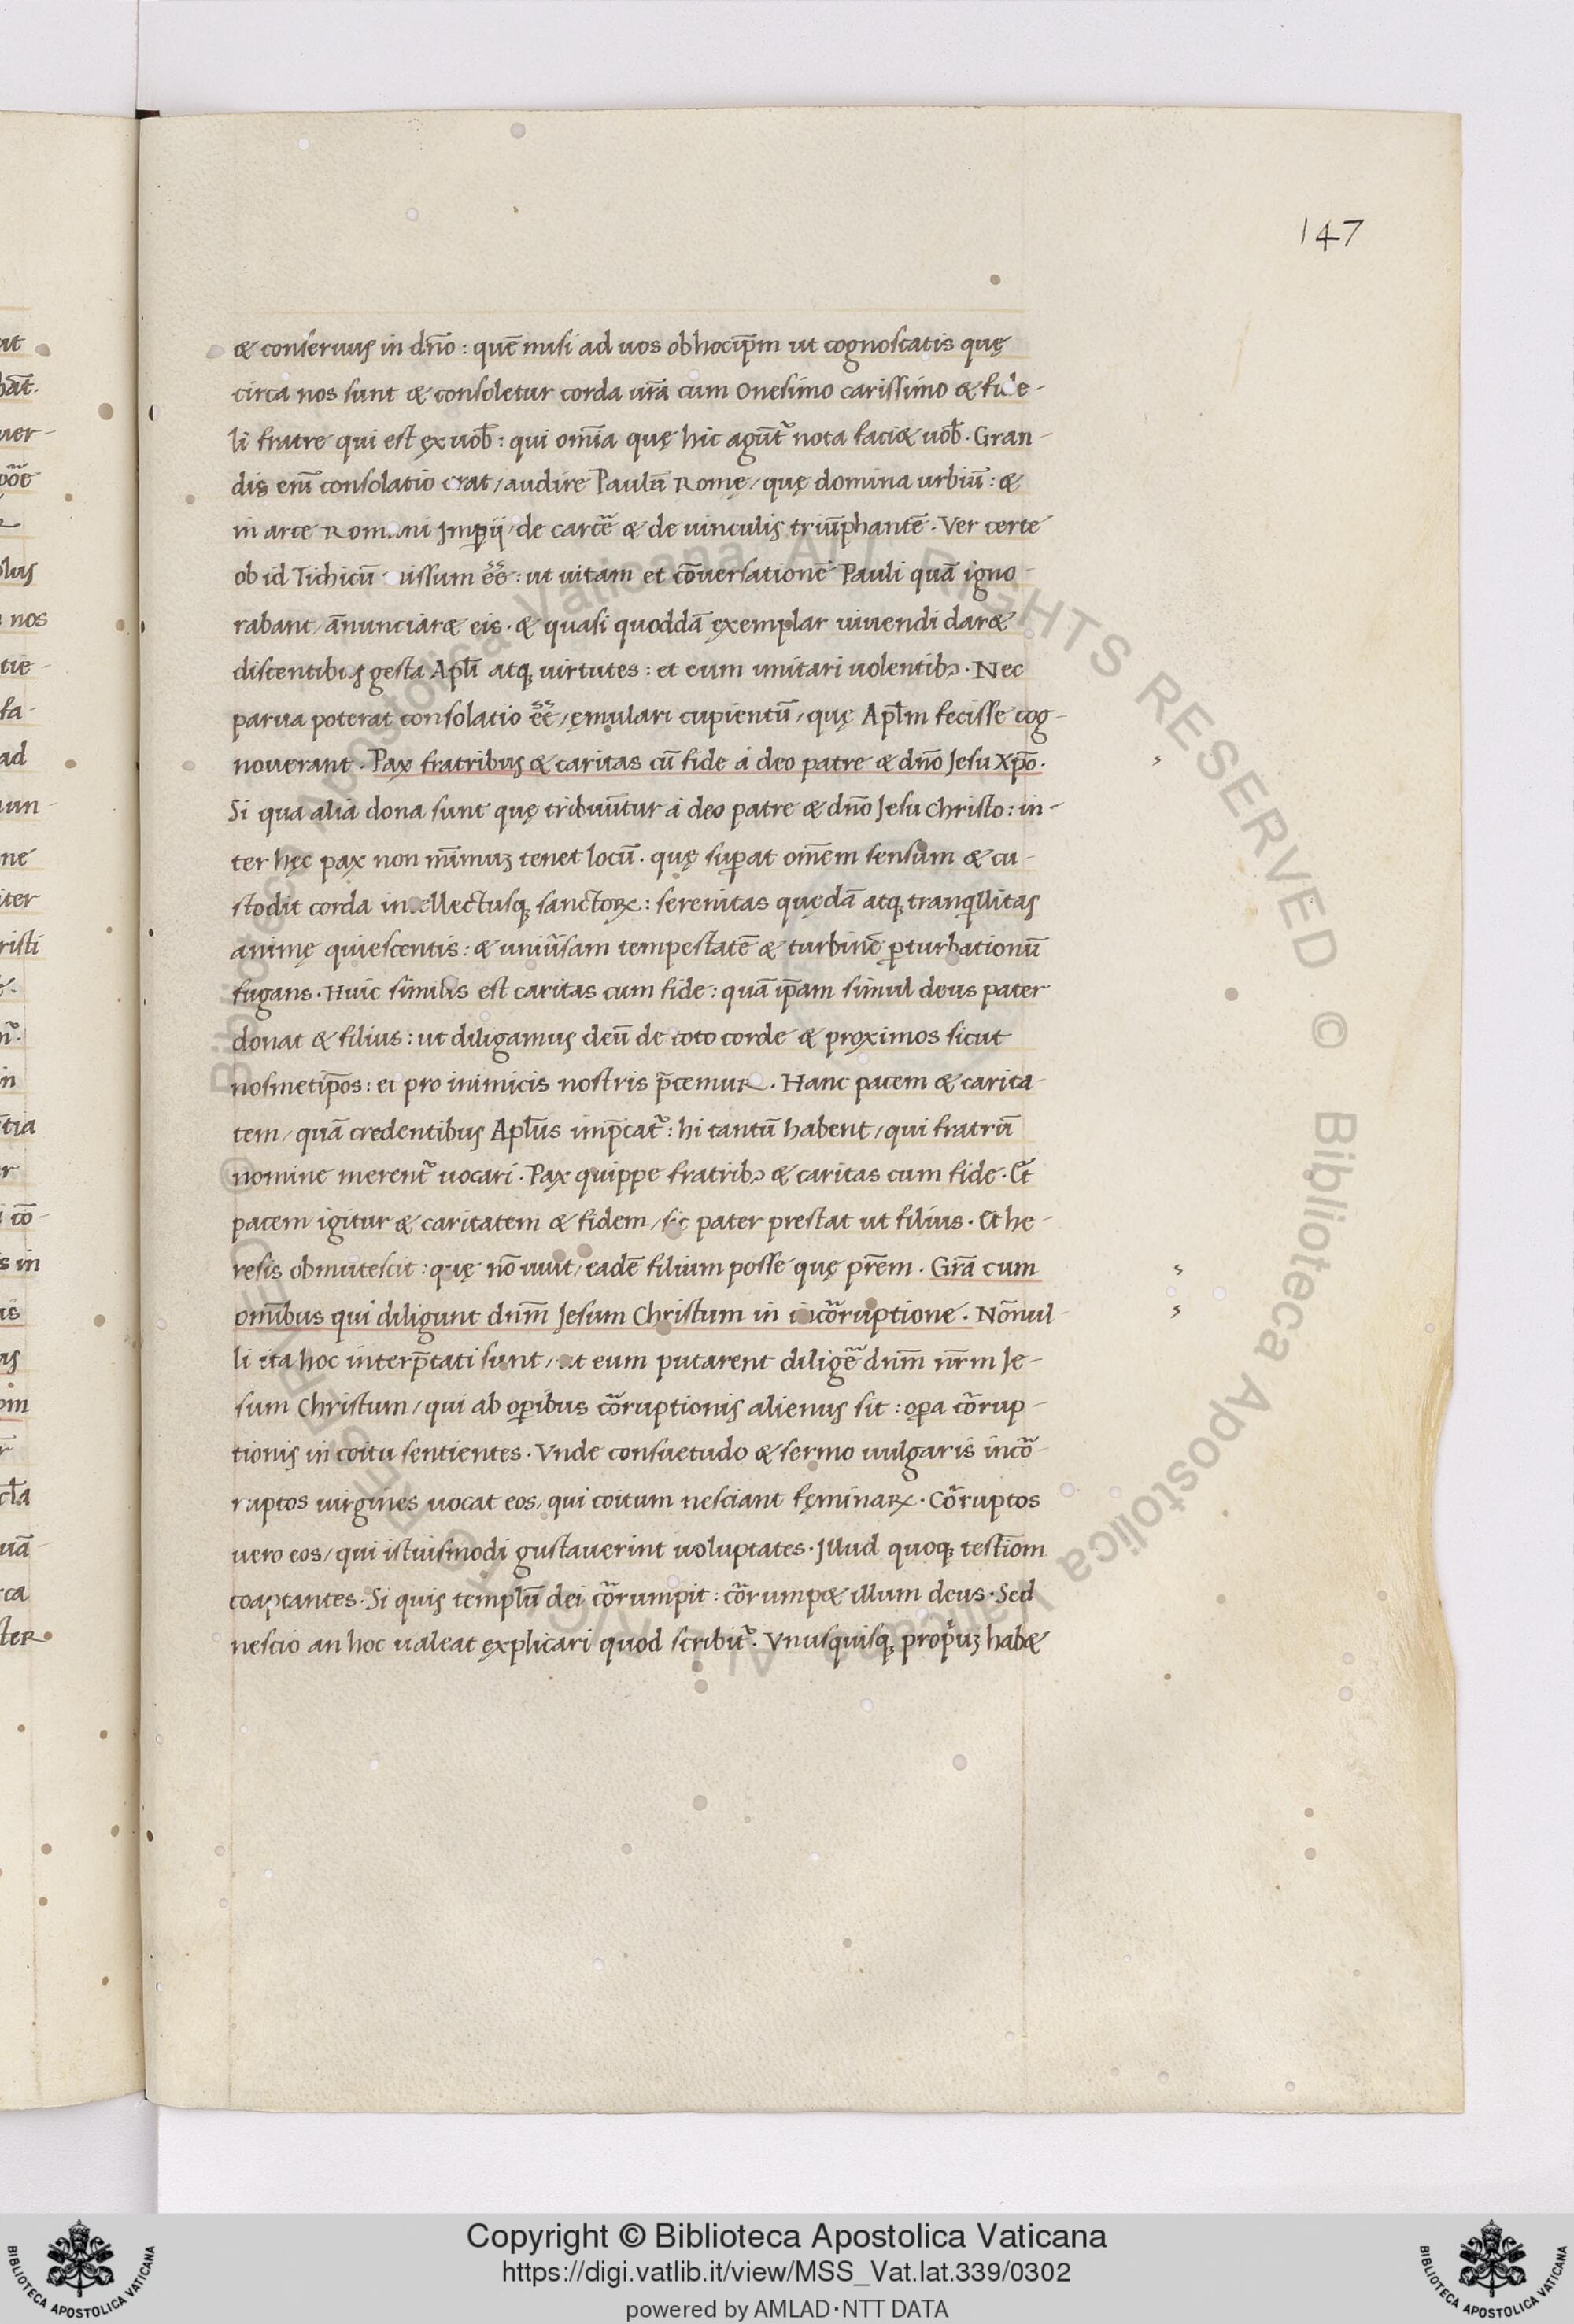 147
& conseruus in dn̄o : quē misi ad uos ob hoc ip̄m ut cognoscatis quę
circa nos sunt & consoletur corda ur̄a cum Onesimo carissimo & fide-
li fratre qui est ex uob̄ : qui om̄ia quę hic agūt᷑ nota faci& uob̄ . Gran-
dis em̄ consolatio erat / audire Paulū Romę / quę domina urbiū : &
in arce Romani Imꝑij / de carcē & de uinculis triūphantē . Ver certe
ob id Tichicū missum eē : ut uitam et cōuersationē Pauli quā igno-
rabant / ānunciar& eis . & quasi quoddā exemplar uiuendi dar&
discentibus gesta Apl̄i atq; uirtutes : et eum imitari uolentibꝰ . Nec
parua poterat consolatio eē / ęmulari cupientū / quę Apl̄m fecisse cog-
nouerant . Pax fratribus & caritas cū fide a deo patre & dn̄o Jesu Xp̄o .
Si qua alia dona sunt quę tribuūtur a deo patre & dn̄o Jesu Christo : in-
ter hęc pax non mīmuꝫ tenet locū . quę suꝑat om̄em sensum & cu-
stodit corda intellectusq; sanctoꝝ : serenitas quędā atq; tranqͥllitas
animę quiescentis : & uniūsam tempestatē & turbinē ꝑturbationū
fugans . Huic similis est caritas cum fide : quā ip̄am simul deus pater
donat & filius : ut diligamus deū de toto corde & proximos sicut
nosmetip̄os : et pro inimicis nostris p̄cemur . Hanc pacem & carita-
tem / quā credentibus Apl̄us imp̄cat᷑ : hi tantū habent / qui fratrū
nomine merent᷑ uocari . Pax quippe fratribꝰ & caritas cum fide . Et
pacem igitur & caritatem & fidem / sic pater prestat ut filius . Et he-
resis obmutescit : quę nō uult / eadē filium posse quę pr̄em . Gr̄a cum
om̄ibus qui diligunt dnm̄ Jesum Christum in incōruptione . Nōnul-
li ita hoc interp̄tati sunt / ut eum putarent diligē dnm̄ nr̄m Je-
sum Christum / qui ab oꝑibus cōruptionis alienus sit : oꝑa cōrup-
tionis in coitu sentientes . Vnde consuetudo & sermo uulgaris incō-
ruptos uirgines uocat eos / qui coitum nesciant fęminaꝝ . Cōruptos
uero eos / qui istiusmodi gustauerint uoluptates . Illud quoq; testīom
coaptantes . Si quis templū dei cōrumpit : cōrump& illum deus . Sed
nescio an hoc ualeat explicari quod scribit᷑ . Vnusquisq; propͥuꝫ hab&
Copyright © Biblioteca Apostolica Vaticana
https://digi.vatlib.it/view/MSS_Vat.lat.339/0302
powered by AMLAD·NTT DATA